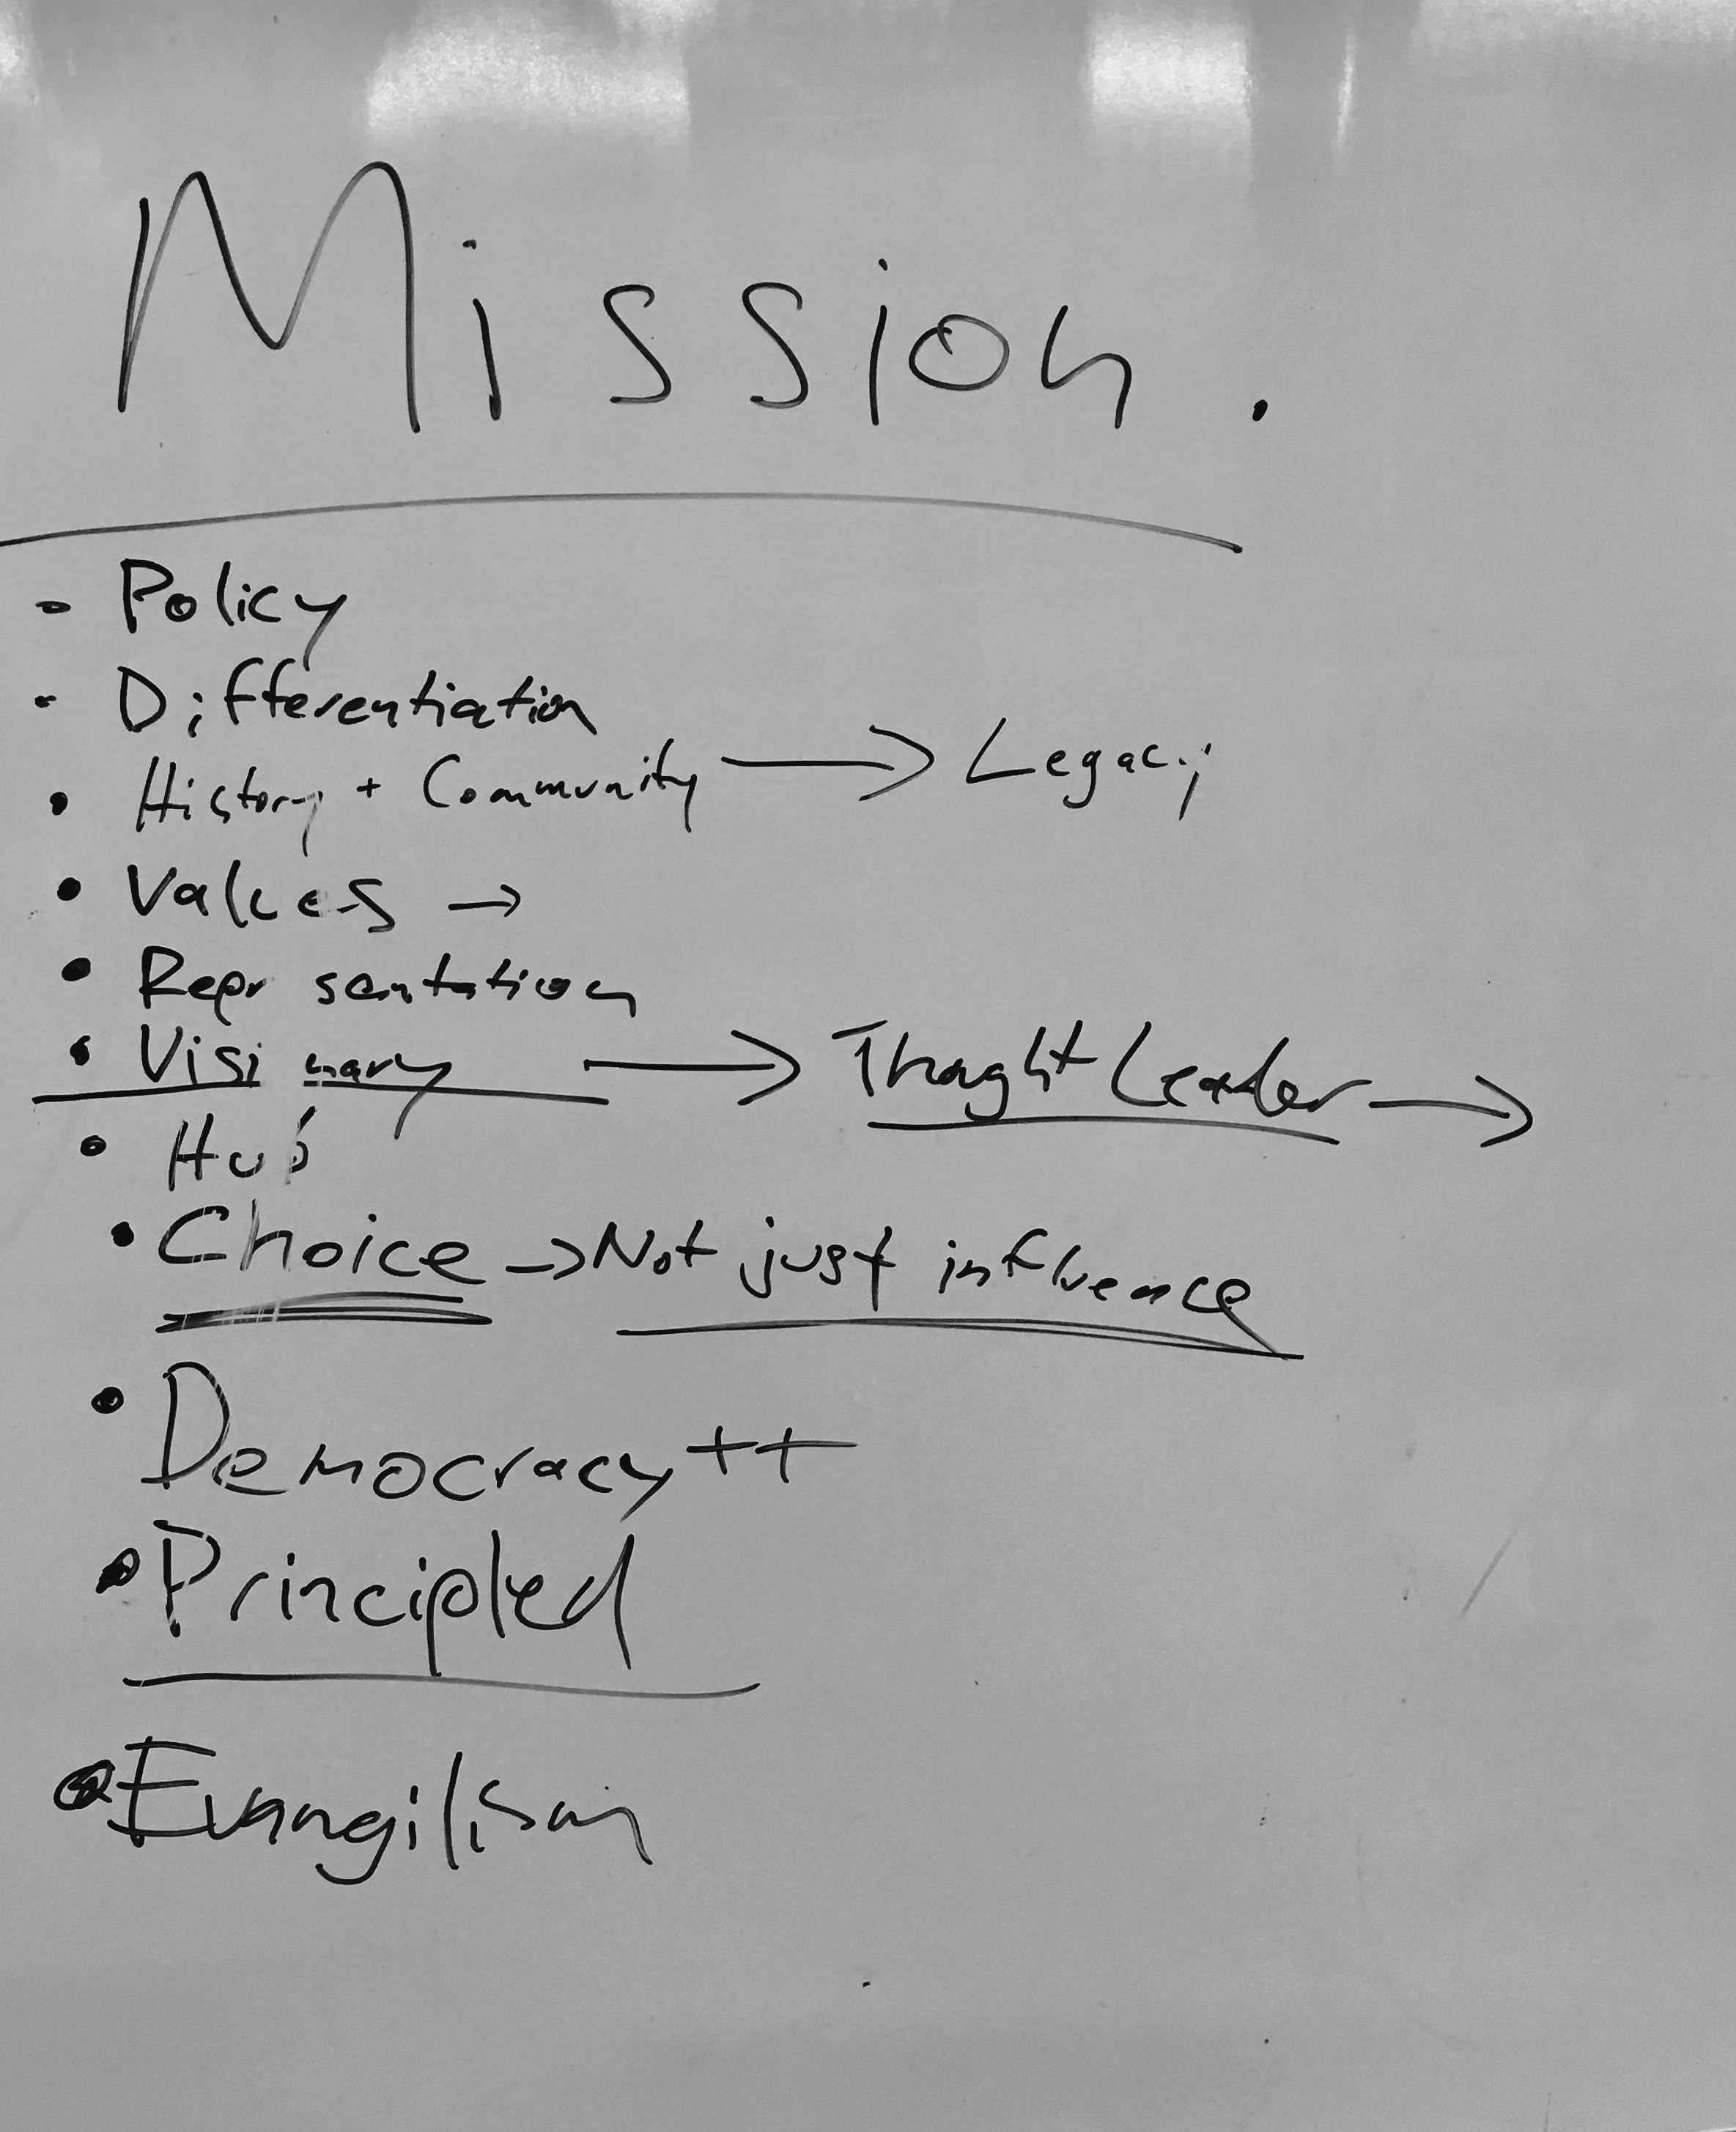 Mission.
- Policy
- Differentiation
• History + Community → Legacy
• Values →
• Repr sentation
• Visi nary → Thought Leader →
• Hub
• Choice → Not just influence
• Democracy ++
• Principled
• Evangilism